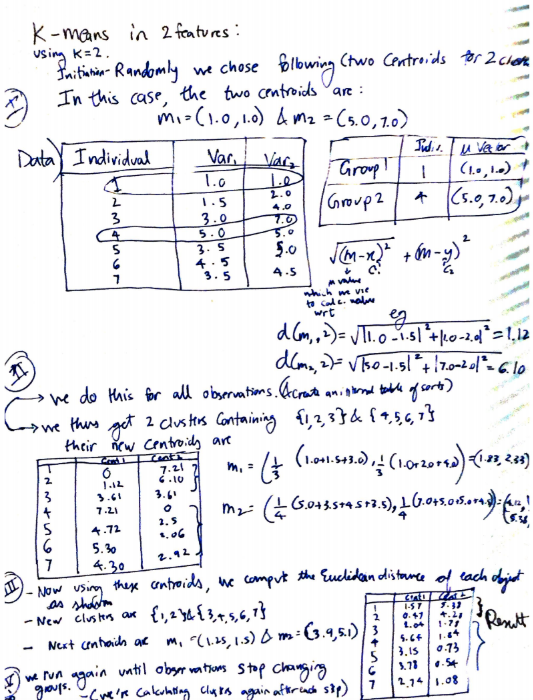 K-means in 2 features:
using K=2.
Initiation- Randomly we chose following (two Centroids for 2
I In this case, the two centroids are:
m₁=(1.0,1.0) & m₂=(5.0,7.0)
Data) Individual Var₁ Var₂
1 1.0 1.0
2 1.5 2.0
3 3.0 4.0
4 5.0 7.0
5 3.5 5.0
6 4.5 5.0
7 3.5 4.5
Indiv. μ Vector
Group 1 1 (1.0,1.0)
Group 2 4 (5.0,7.0)
√(m-x)² + (m-y)²
C₁ C₂
m value
which we use
to calc. value
wrt
eg
d(m₁,2)=√|1.0-1.5|²+|1.0-2.0|²=1.12
d(m₂,2)=√|5.0-1.5|²+|7.0-2.0|²=6.10
II
→ we do this for all observations. (& create an internal table of sorts)
→ we thus get 2 clusters Containing {1,2,3} & {4,5,6,7}
their new Centroids are
Cent 1 Cent 2
1 0 7.21
2 1.12 6.10
3 3.61 3.61
4 7.21 0
5 4.72 2.5
6 5.30 2.06
7 4.30 2.92
m₁ = (1/3 (1.0+1.5+3.0), 1/3 (1.0+2.0+4.0)) = (1.83, 2.33)
m₂ = (1/4 (5.0+3.5+4.5+3.5), 1/4 (7.0+5.0+5.0+4.5)) = (4.12,
5.38)
III - Now using these centroids, we compute the Euclidean distance of each object
as shown
- New clusters are {1,2} & {3,4,5,6,7}
- Next centroids are m₁=(1.25,1.5) & m₂=(3.9,5.1)
Cent 1 Cent 2
1 1.57 5.38
2 0.47 4.28
3 2.04 1.78
4 5.64 1.84
5 3.15 0.73
6 3.78 0.54
7 2.74 1.08
Result
we run again until observations stop changing
groups. - (we're Calculating clusters again after each step)